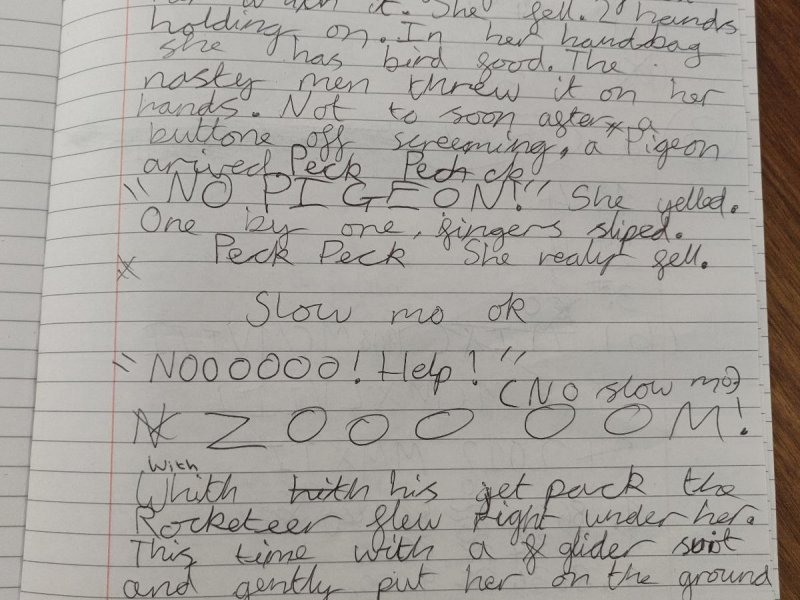 it. She fell. 2 hands
holding on. In her handbag
she has bird food. The
nasty men threw it on her
hands. Not to soon after a
buttone off screeming, a Pigeon
arived. Peck Peck
"NO PIGEON!" She yelled.
One by one, fingers sliped.
Peck Peck She realy fell.
Slow mo ok
"NOOOOOO! Help!"
(No slow mo)
ZOOOOOOM!
With
Whith his get pack the
Rocketeer flew right under her.
This time with a glider suit
and gently put her on the ground